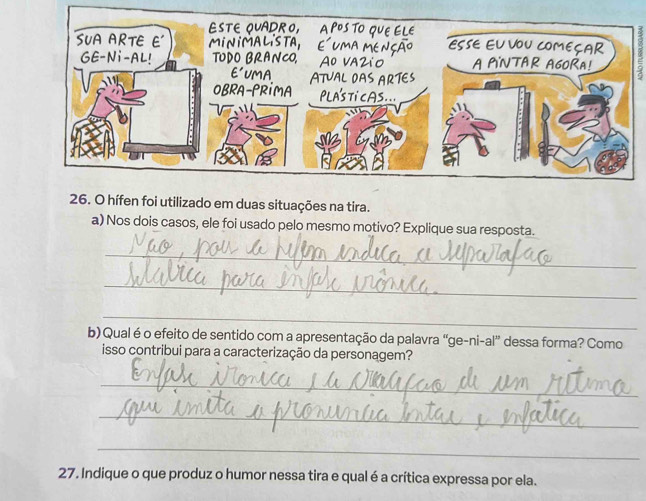 SUA ARTE É
GE-NI-AL!
ESTE QUADRO,
MINIMALISTA,
TODO BRANCO,
É UMA
OBRA-PRIMA
APOSTO QUE ELE
É UMA MENÇÃO
AO VAZIO
ATUAL DAS ARTES
PLÁSTICAS...
ESSE EU VOU COMEÇAR
A PINTAR AGORA!
ADÃO ITURRUSGARAI
26. O hífen foi utilizado em duas situações na tira.
a) Nos dois casos, ele foi usado pelo mesmo motivo? Explique sua resposta.
Não, pois a hífem indica a separafaco
silabica para enfase irônica.
b) Qual é o efeito de sentido com a apresentação da palavra "ge-ni-al" dessa forma? Como
isso contribui para a caracterização da personagem?
Enfase ironica e a criação de um ritimo
que imita a pronuncia lenta e enfatica
27. Indique o que produz o humor nessa tira e qual é a crítica expressa por ela.